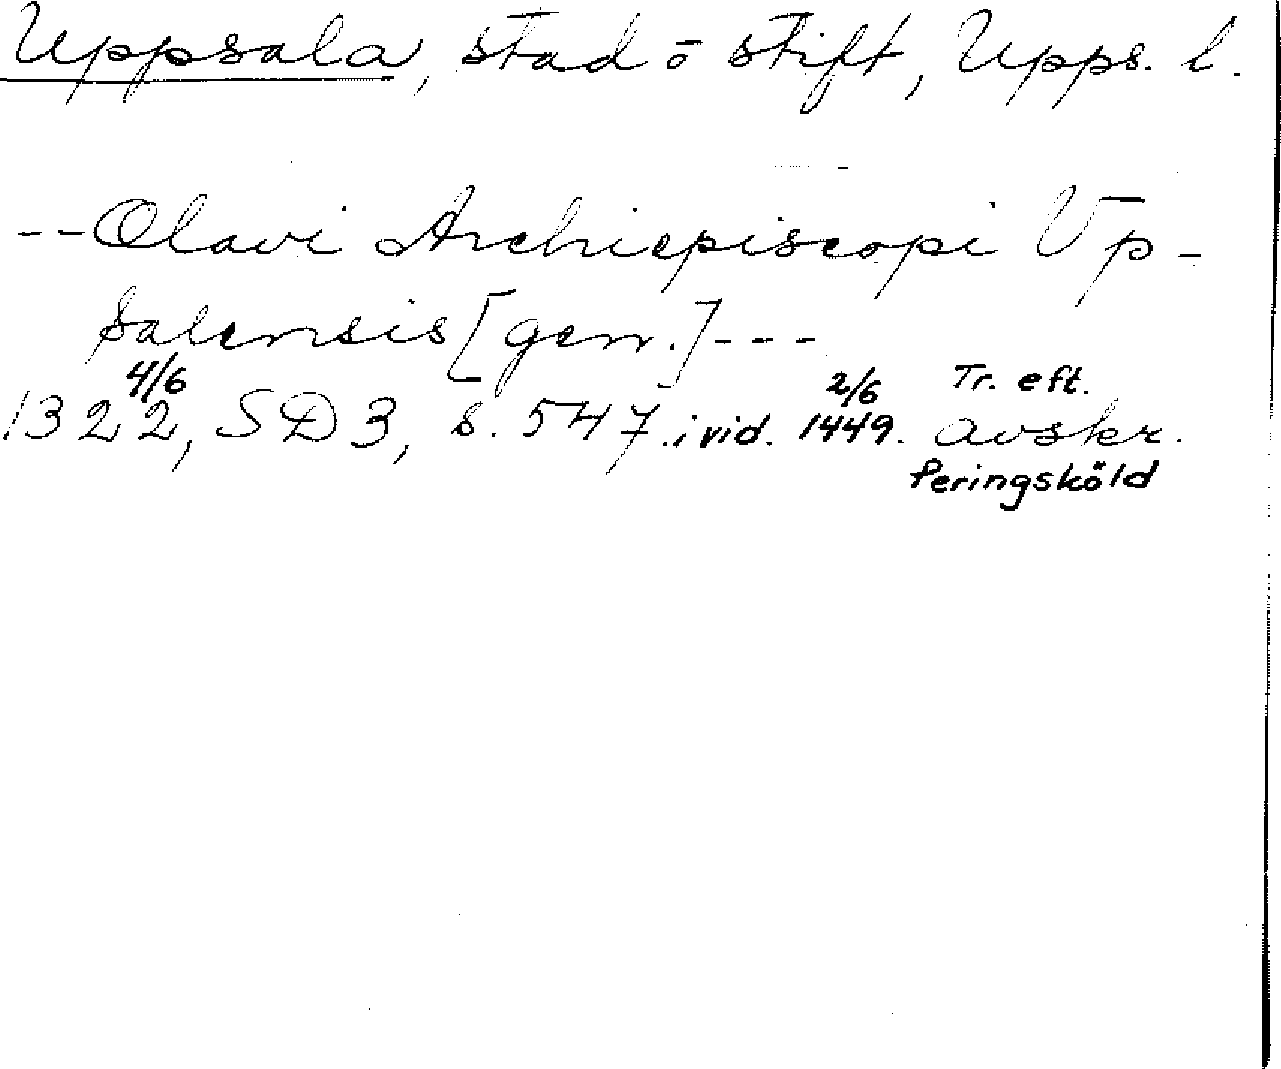 Uppsala, stad o stift, Upps. l.
--Olavi Archiepiscopi Vp-
salensis [gen.]---
4/6 2/6 Tr. eft.
1322, SD3, s. 547. i vid. 1449. avskr.
Peringsköld